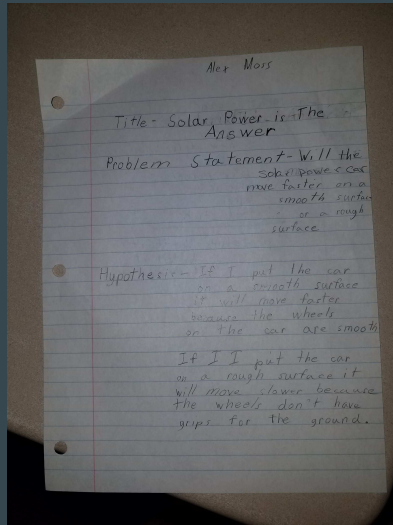 Alex Moss
Title- Solar Power is The
Answer
Problem Statement- Will the
solar power car
move faster on a
smooth surface
or a rough
surface
Hypothesis- If I put the car
on a smooth surface
it will move faster
because the wheels
on the car are smooth
If I I put the car
on a rough surface it
will move slower because
the wheels don't have
grips for the ground.